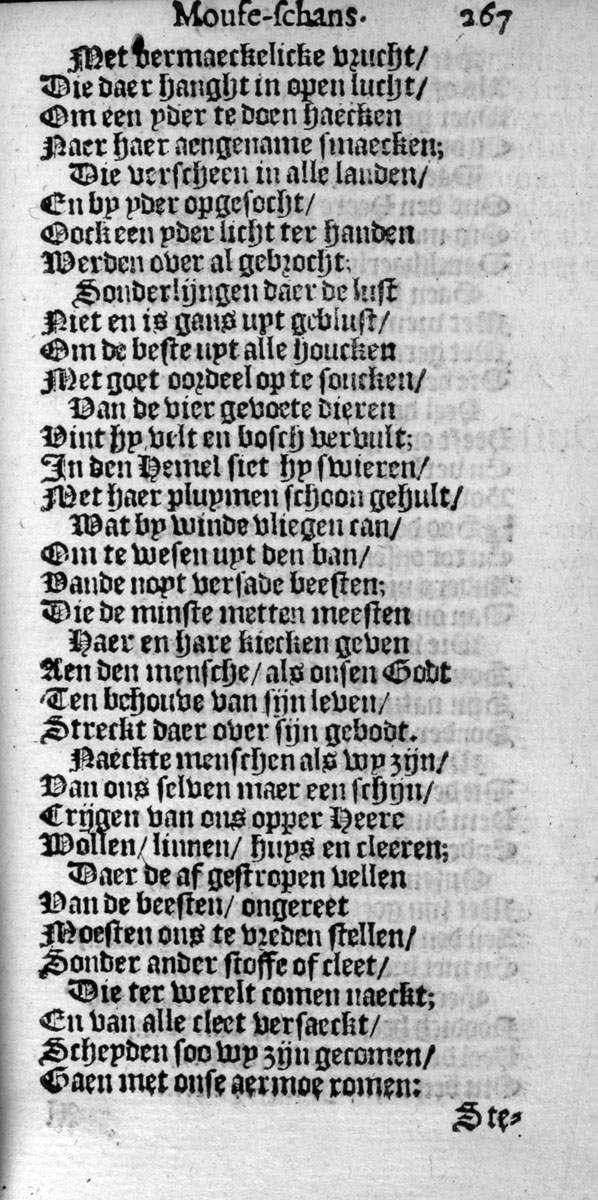 Moufe-schans. 267
Met vermaeckelicke vrucht/
Die daer hanght in open lucht/
Om een yder te doen haecken
Naer haer aengename smaecken;
Die verscheen in alle landen/
En by yder opgesocht/
Oock een yder licht ter handen
Werden over al gebrocht;
Sonderlijngen daer de lust
Niet en is gans uyt geblust/
Om de beste uyt alle houcken
Met goet oordeel op te soucken/
Van de vier gevoete dieren
Vint hy velt en bosch vervult;
In den Hemel siet hy swieren/
Met haer pluymen schoon gehult/
Wat by winde vliegen can/
Om te wesen uyt den ban/
Vande noyt versade beesten;
Die de minste metten meesten
Haer en hare kiecken geven
Aen den mensche/ als onsen Godt
Ten behouve van sijn leven/
Streckt daer over sijn gebodt.
Naeckte menschen als wy zijn/
Van ons selven maer een schijn/
Crijgen van ons opper Heere
Wollen/ linnen/ huys en cleeren;
Daer de af gestropen vellen
Van de beesten/ ongereet
Moesten ons te vreden stellen/
Sonder ander stoffe of cleet/
Die ter werelt comen naeckt;
En van alle cleet versaeckt/
Scheyden soo wy zijn gecomen/
Gaen met onse aermoe romen:
Ste-